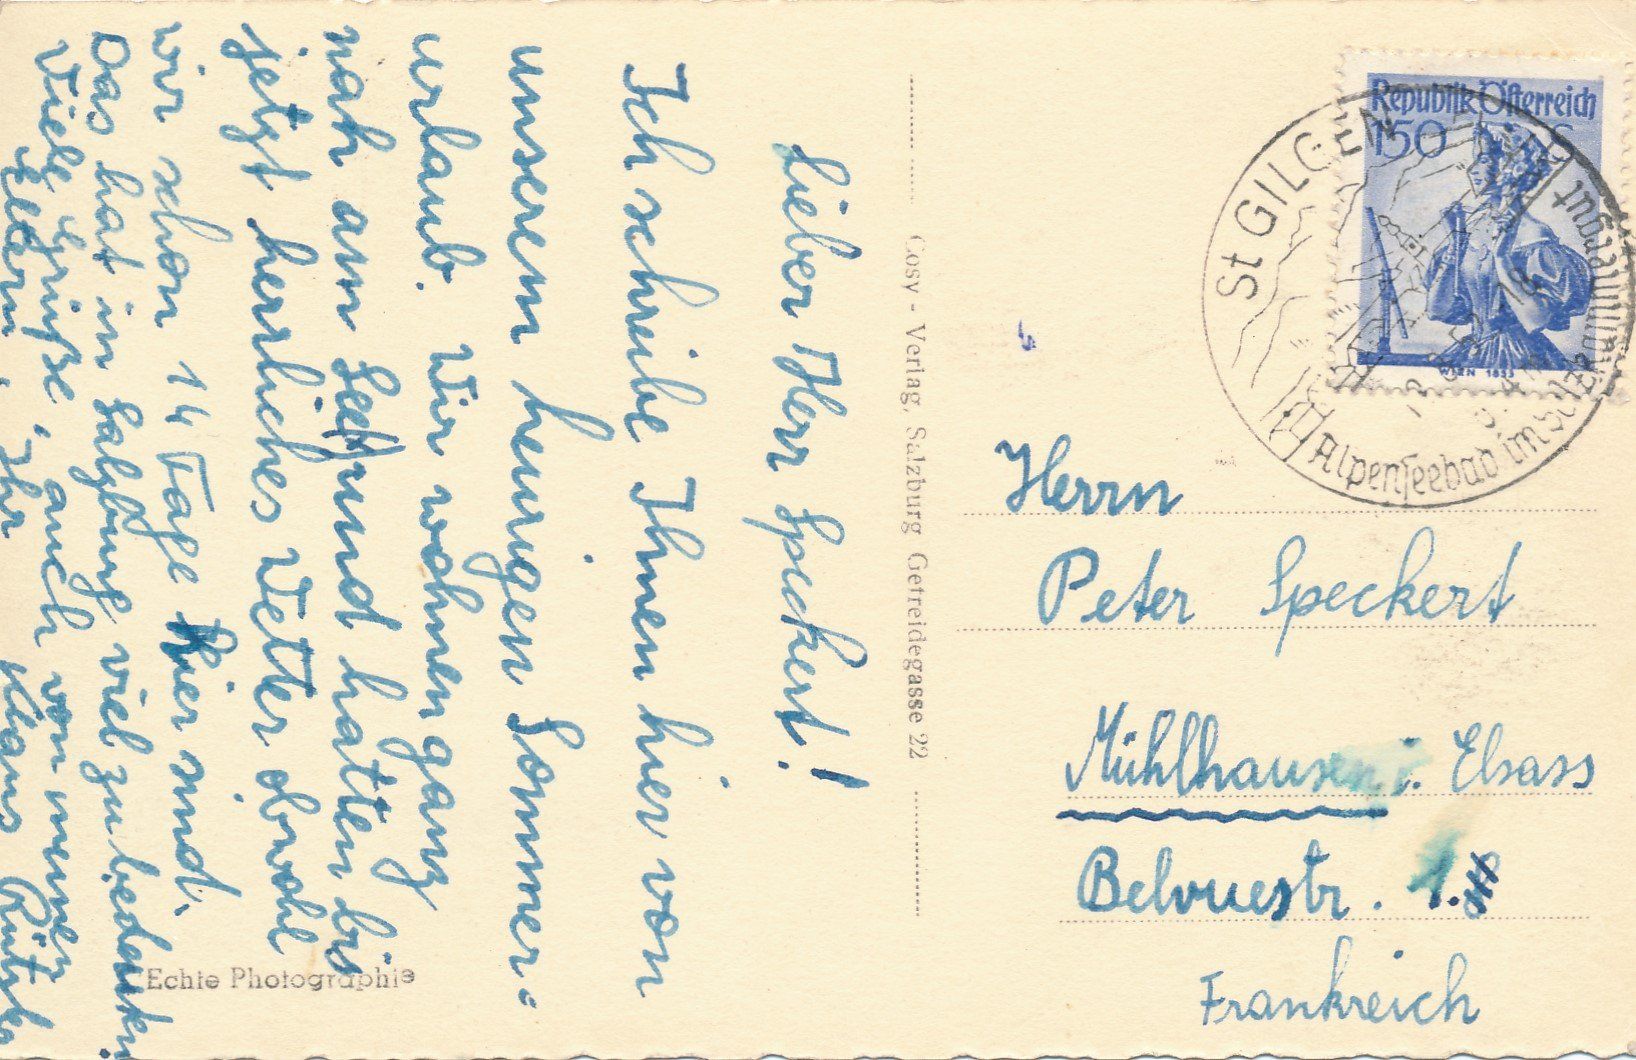 Lieber Herr Speckert!
Ich schreibe Ihnen hier von
unserem heurigen Sommer=
urlaub. Wir wohnen ganz
nah am See und hatten bis
jetzt herrliches Wetter obwohl
wir schon 14 Tage hier sind.
Das hat in Salzburg viel zu bedeuten.
Viele Grüße, auch von meinen
Eltern, Ihr Klaus
Echte Photographie
Cosy - Verlag, Salzburg Getreidegasse 22
Republik Österreich
150 S
WIEN 1853
St GILGEN
Alpenseebad im Salzkammergut
Herrn
Peter Speckert
Mühlhausen i. Elsass
Belvuestr. 1.
Frankreich